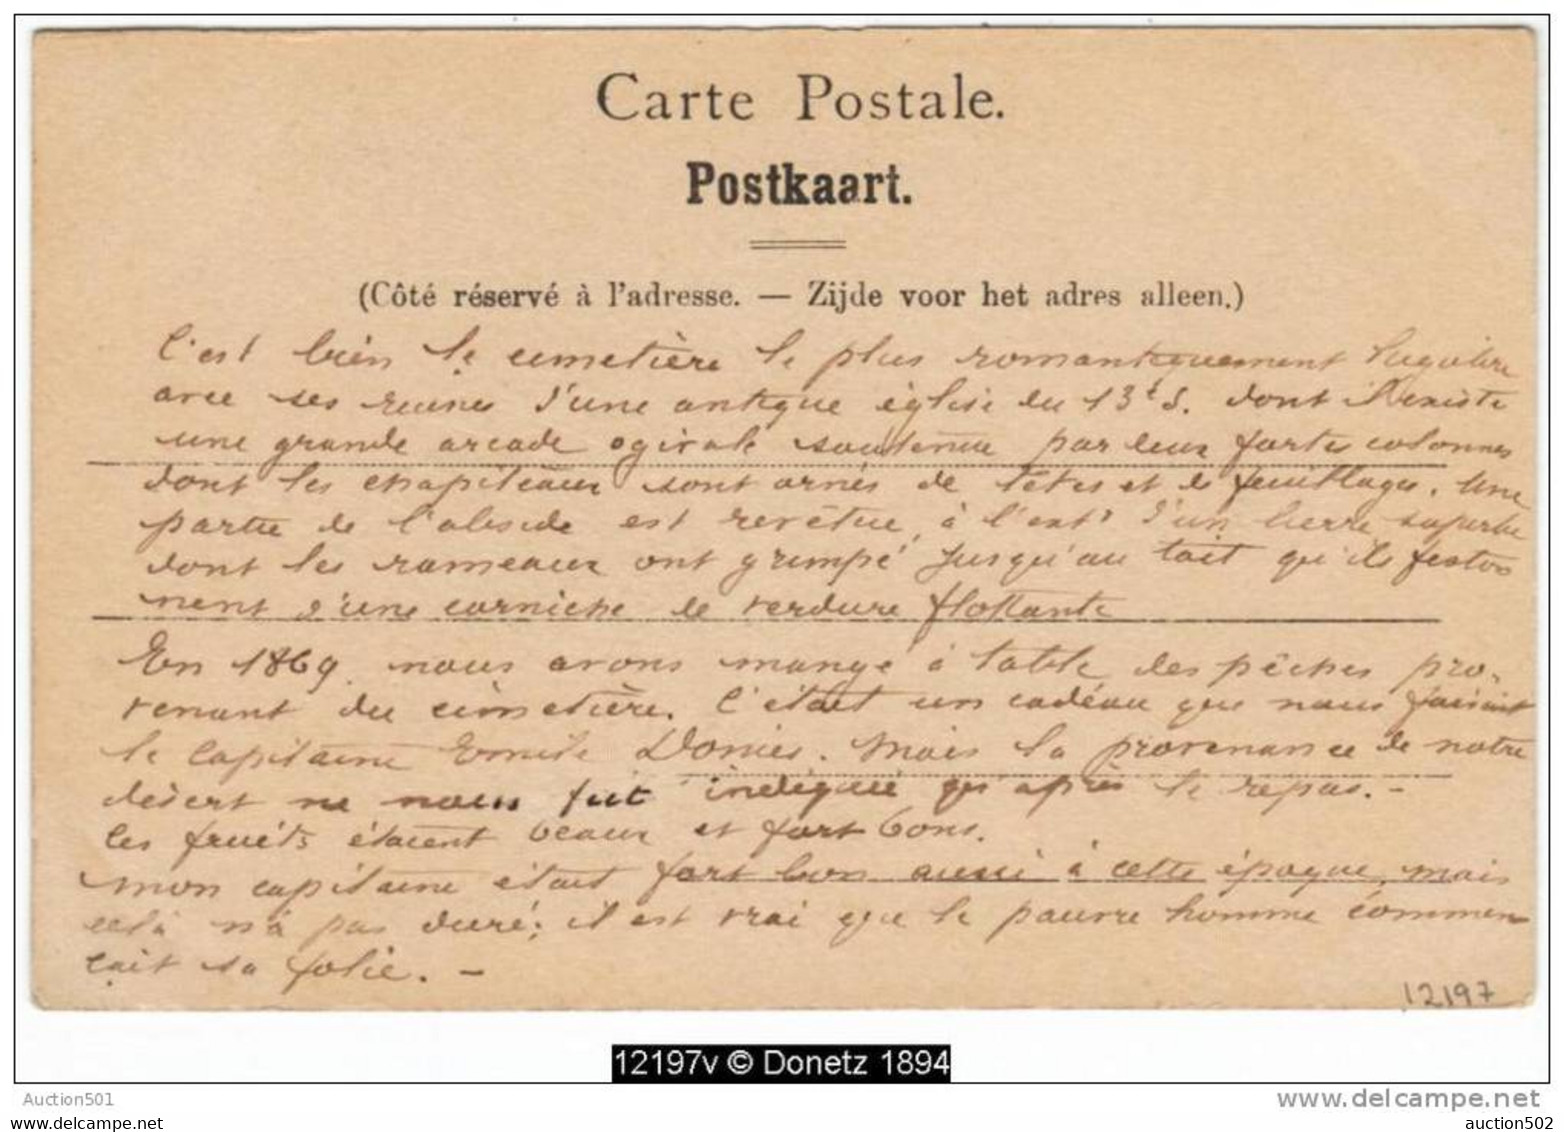 Carte Postale.
Postkaart.
(Côté réservé à l'adresse. — Zijde voor het adres alleen.)
C'est bien le cimetière le plus romantiquement lugubre
avec ses ruines d'une antique église du 13e S. dont il existe
une grande arcade ogivale soutenue par deux fortes colonnes
dont les chapiteaux sont ornés de têtes et de feuillages. Une
partie de l'abside est revêtue, à l'est, d'un lierre superbe
dont les rameaux ont grimpé jusqu'au toit qu'ils feston
nent d'une corniche de verdure flottante
En 1869 nous avons mangé à table des pêches pro-
venant du cimetière. C'était un cadeau que nous faisait
le capitaine Emile. Mais la provenance de notre
désert ne nous fut indiquée qu'après le repas. -
Les fruits étaient beaux et fort bons.
Mon capitaine était fort bon aussi à cette époque, mais
celà n'a pas duré; il est vrai que le pauvre homme commen
çait sa folie. -
12197
12197v © Donetz 1894
Auction501
www.delcampe.net
www.delcampe.net
auction502